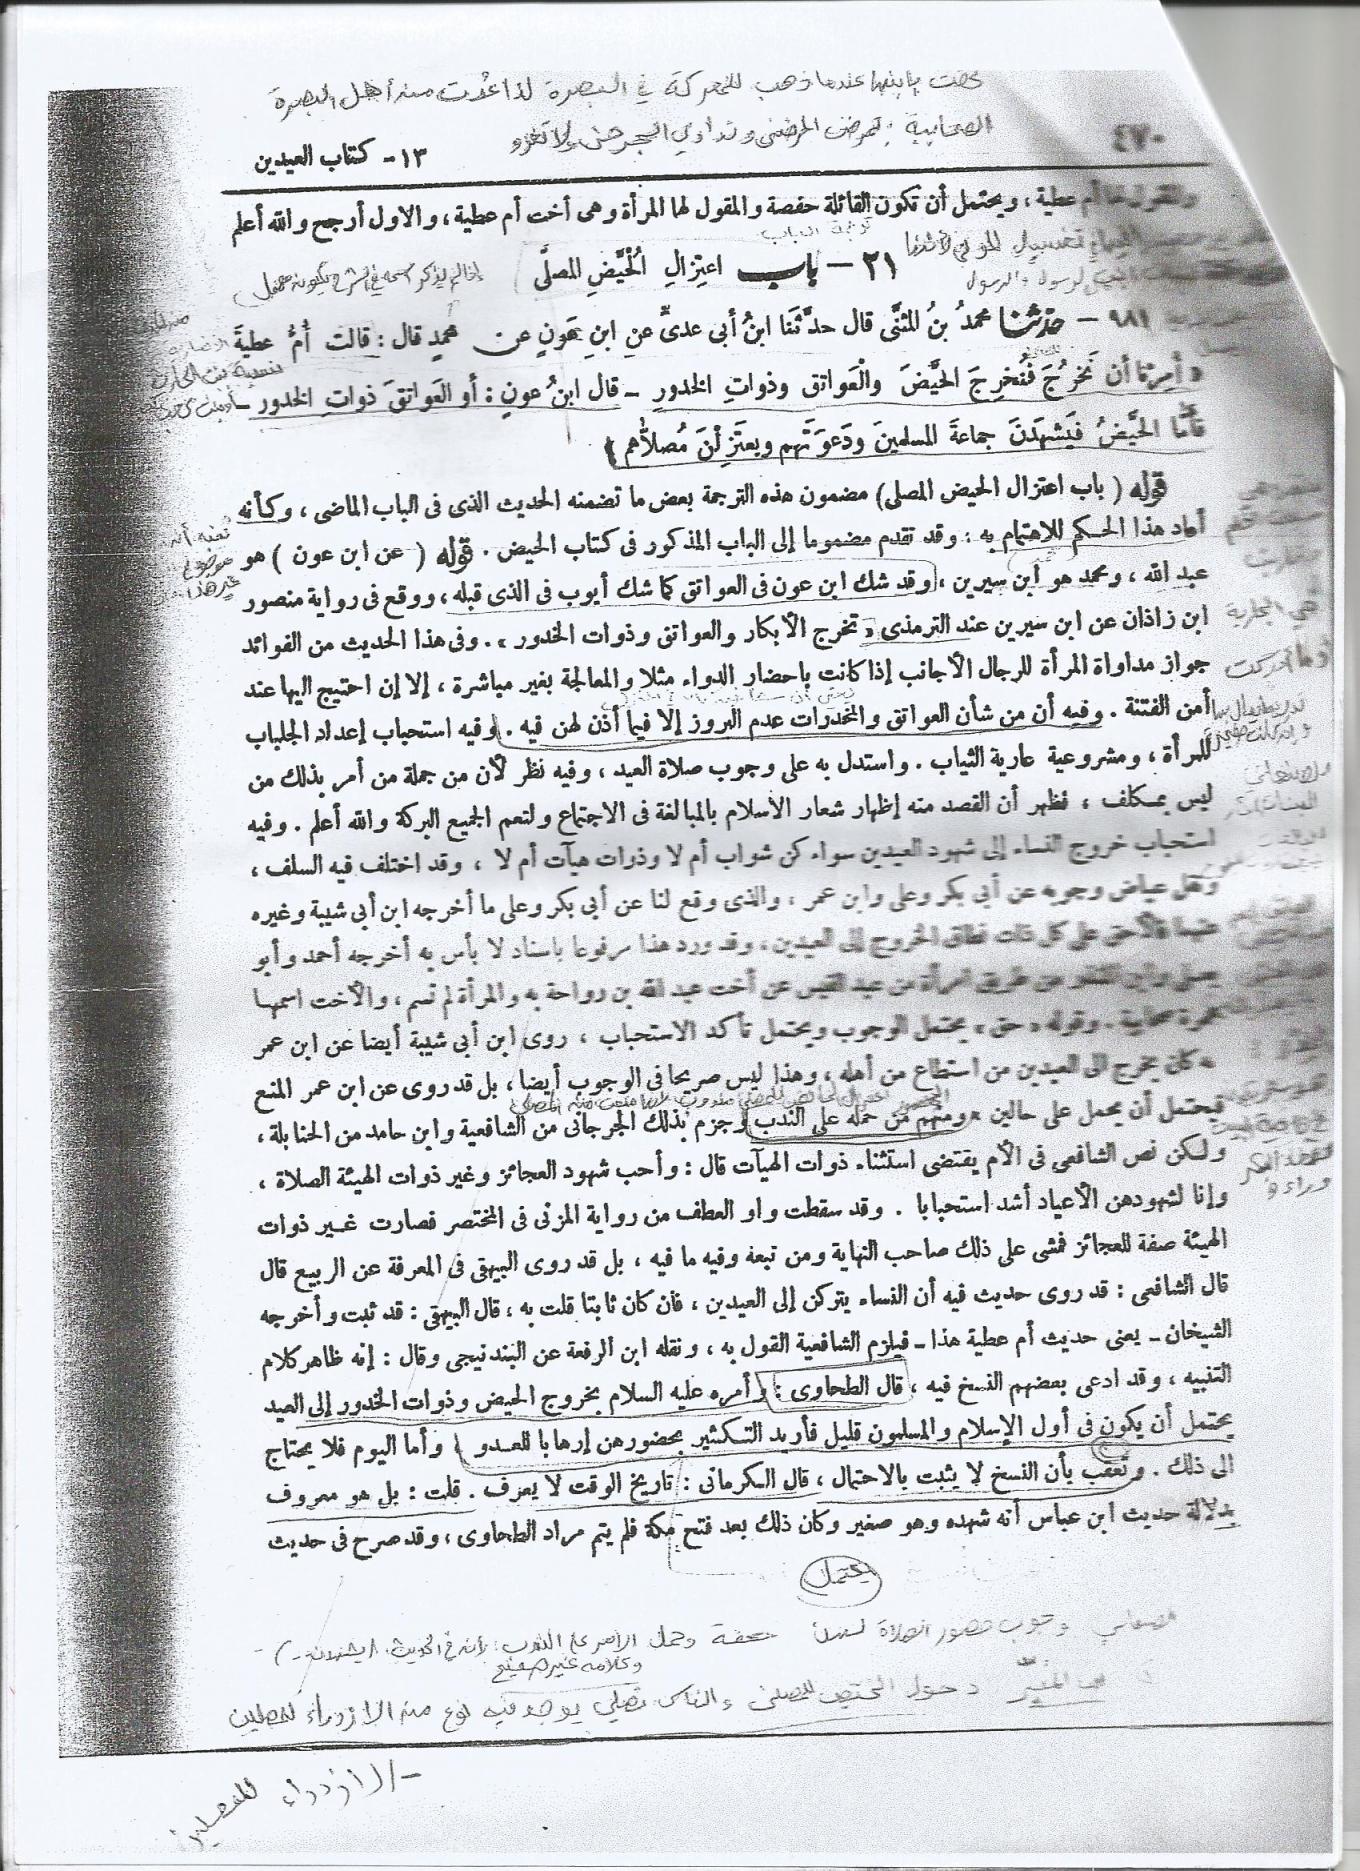 عندما ذهب للمعركة في البصرة لذا عدت من أهل البصرة
الصحابية تمرض المرضى وتداوي الجرحى ولا تغزو
٤٧٠
١٣- كتاب العيدين
والمقول لها أم عطية ، ويحتمل أن تكون القائلة حفصة والمقول لها المرأة وهى أخت أم عطية ، والاول أرجح والله أعلم
٢١ – باب اعتزالِ الْحُيَّضِ المصلَّى
٩٨١ – حدثنا محمدُ بنُ المثنَّى قال حدَّثَنا ابنُ أبى عدىٍّ عنِ ابنِ عَونٍ عن محمدٍ قال : قالت أمُّ عطيةَ
« أُمِرنا أن نَخرُجَ فنُخرِجَ الحيَّضَ والْعواتقَ وذواتِ الخدورِ – قال ابنُ عونٍ : أو العَواتقَ ذواتِ الخدورِ –
فأمَّا الحيَّضُ فيَشهَدْنَ جماعةَ المسلمينَ ودَعوَتَهم ويعتَزِلْنَ مُصلاَّهم »
قوله ( باب اعتزال الحيض المصلى ) مضمون هذه الترجمة بعض ما تضمنه الحديث الذى فى الباب الماضى ، وكأنه
أعاد هذا الحكم للاهتمام به ، وقد تقدم مضموما إلى الباب المذكور فى كتاب الحيض . قوله ( عن ابن عون ) هو
عبد الله ، ومحمد هو ابن سيرين ، وقد شك ابن عون فى العواتق كما شك أيوب فى الذى قبله ، ووقع فى رواية منصور
ابن زاذان عن ابن سيرين عند الترمذى « تخرج الأبكار والعواتق وذوات الخدور » . وفى هذا الحديث من الفوائد
جواز مداواة المرأة للرجال الأجانب إذا كانت باحضار الدواء مثلا والمعالجة بغير مباشرة ، إلا إن احتيج اليها عند
أمن الفتنة . وفيه أن من شأن العواتق والمخدرات عدم البروز إلا فيما أذن لهن فيه . وفيه استحباب إعداد الجلباب
للمرأة ، ومشروعية عارية الثياب . واستدل به على وجوب صلاة العيد ، وفيه نظر لأن من جملة من أمر بذلك من
ليس بمكلف ، فظهر أن القصد منه إظهار شعار الاسلام بالمبالغة فى الاجتماع ولتعم الجميع البركة والله أعلم . وفيه
استحباب خروج النساء إلى شهود العيدين سواء كن شواب أم لا وذوات هيآت أم لا ، وقد اختلف فيه السلف ،
ونقل عياض وجوبه عن أبى بكر وعلى وابن عمر ، والذى وقع لنا عن أبى بكر وعلى ما أخرجه ابن أبى شيبة وغيره
عنهما قالا حق على كل ذات نطاق الخروج إلى العيدين ، وقد ورد هذا مرفوعا باسناد لا بأس به أخرجه أحمد وأبو
يعلى وابن المنذر من طريق امرأة من عبد القيس عن أخت عبد الله بن رواحة به والمرأة لم تسم ، والأخت اسمها
عمرة صحابية . وقوله « حق » يحتمل الوجوب ويحتمل تأكد الاستحباب ، روى ابن أبى شيبة أيضا عن ابن عمر
« كان يخرج الى العيدين من استطاع من أهله ، وهذا ليس صريحا فى الوجوب أيضا ، بل قد روى عن ابن عمر المنع
فيحتمل أن يحمل على حالين ، ومنهم من حمله على الندب وجزم بذلك الجرجانى من الشافعية وابن حامد من الحنابلة ،
ولكن نص الشافعى فى الأم يقتضى استثناء ذوات الهيآت قال : وأحب شهود العجائز وغير ذوات الهيئة الصلاة ،
وإنا لشهودهن الأعياد أشد استحبابا . وقد سقطت واو العطف من رواية المزنى فى المختصر فصارت غير ذوات
الهيئة صفة للعجائز فمشى على ذلك صاحب النهاية ومن تبعه وفيه ما فيه ، بل قد روى البيهقى فى المعرفة عن الربيع قال
قال الشافعى : قد روى حديث فيه أن النساء يتركن إلى العيدين ، فان كان ثابتا قلت به ، قال البيهقى : قد ثبت وأخرجه
الشيخان – يعنى حديث أم عطية هذا – فيلزم الشافعية القول به ، ونقله ابن الرفعة عن البندنيجى وقال : إنه ظاهر كلام
التنبيه ، وقد ادعى بعضهم النسخ فيه ، قال الطحاوى : أمره عليه السلام بخروج الحيض وذوات الخدور إلى العيد
يحتمل أن يكون فى أول الإسلام والمسلمون قليل فأريد التكثير بحضورهن إرهابا للعدو ، وأما اليوم فلا يحتاج
الى ذلك . وتعقب بأن النسخ لا يثبت بالاحتمال ، قال الكرمانى : تاريخ الوقت لا يعرف . قلت : بل هو معروف
بدلالة حديث ابن عباس أنه شهده وهو صغير وكان ذلك بعد فتح مكة فلم يتم مراد الطحاوى ، وقد صرح فى حديث
يحتمل
وجوب حضور الصلاة وحمل الأمر على الندب لأنه في الحديث ( يشهدن )
وكلامه غير صحيح
المصلى والناس تصلي يوجد فيه نوع من الازدراء للمصلين
- الازدراء للمصلين